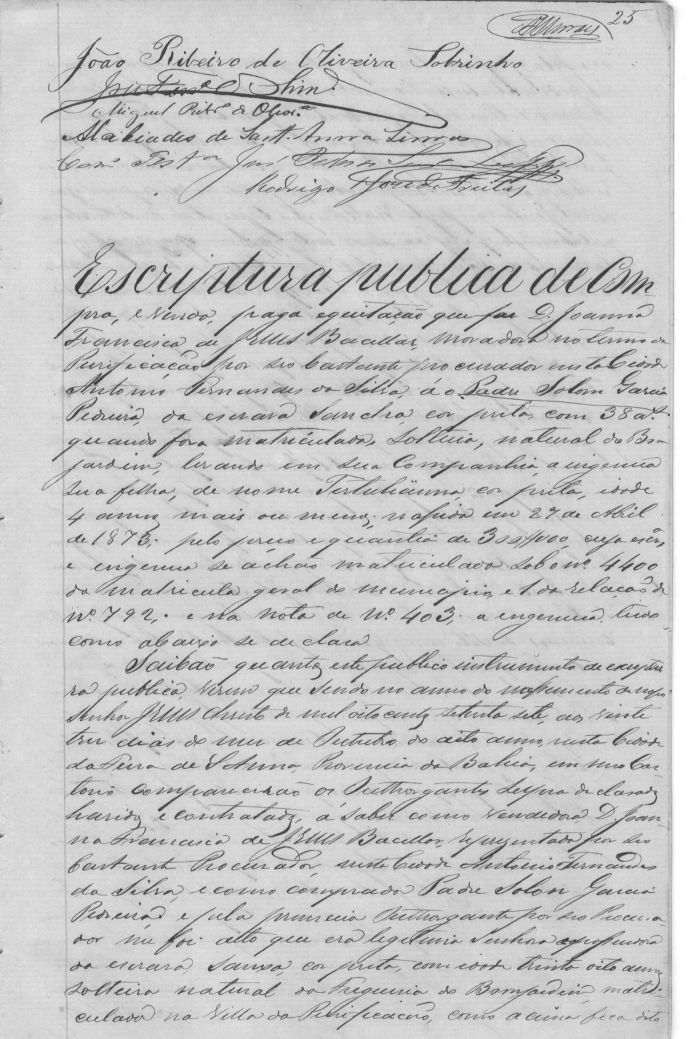 25
João Ribeiro de Oliveira Sobrinho
Miguel Ribº de Olivrª
Alcebiades de Santanna Lima
Como Testª José
Rodrigo José de Freitas
Escriptura publica de Com
pra, e venda, paga e quitação que faz D. Joanna
Francisca de JESUS Bacellar, moradora no termo da
Purificação por seo bastante procurador nesta Cidade
Antonio Fernandes da Silva, á o Padre Solon Garcia
Pedreira, da escrava Sancha, cor preta, com 38 aˢ
quando fora matriculada, solteira, natural do Bom
jardim, levando em sua Companhia, a ingenua
sua filha, de nome Tertulianna, cor preta, idade
4 annos mais ou menos; nascida em 27 de Abril
de 1873; pelo preço e quantia de cuja escrª
e ingenua se áchão matriculada sob o nº 4400
da matricula geral do municipio, e 1 da relação de
nº 792, e na nota de Nº 403, a ingenua, tudo
como abaixo se declara
Saibão quantos este publico instrumento de escriptu
ra publica virem que sendo no anno do nascimento de nosso
Senhor JESUS Christo de mil oito centos setenta sete, aos vinte
tres dias do mez de Outubro do dito anno, nesta Cidade
da Feira de S. Anna, Provincia da Bahia, em meo Car
torio comparecerão os Outhorgantes declarados
havidos e contratados, á saber como vendedora D. Joan
na Francisca de JESUS Bacellar, representada por seo
bastante Procurador, nesta Cidade Antonio Fernandes
da Silva, e como comprador Padre Solon Garcia
Pedreira, e pela primeira Outhorgante por seo Procura
dor me foi dito que era legitima Senhora e possuidora
da escrava, Sancha, cor preta, com idade trinta oito annos
solteira natural da Freguesia do Bomjardim, matri
culada na Villa da Purificação, como acima fica dito